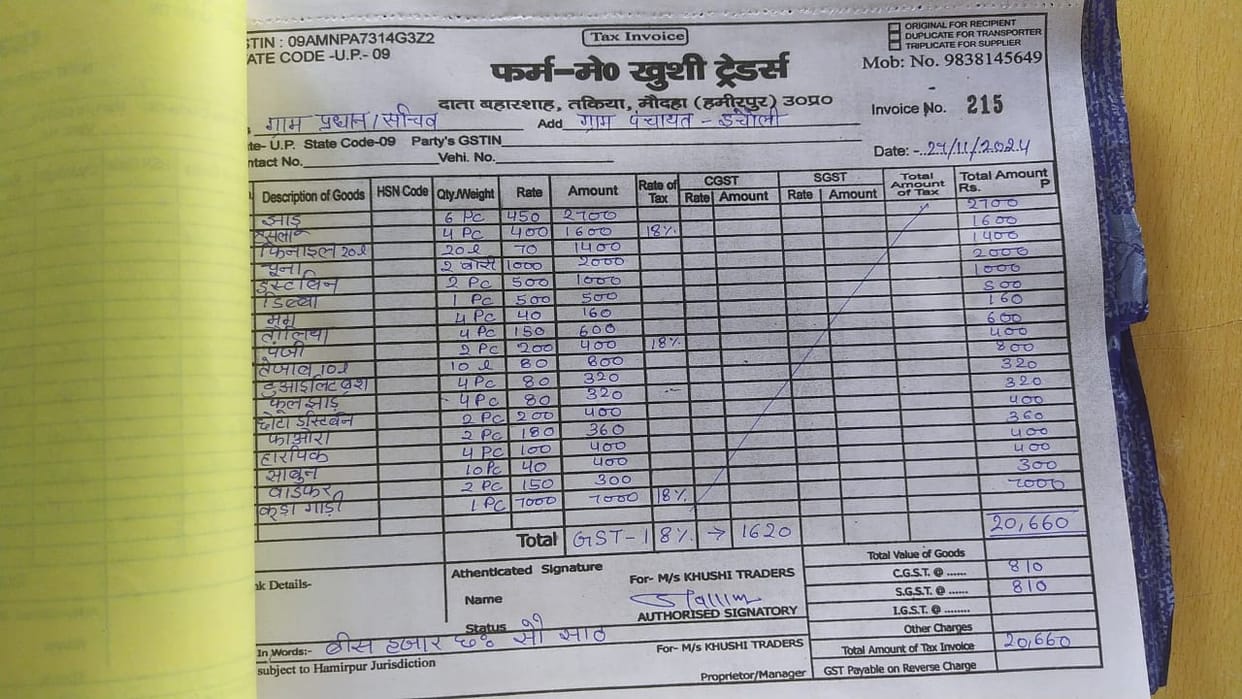 STIN : 09AMNPA7314G3Z2
ATE CODE -U.P.- 09
Tax Invoice
ORIGINAL FOR RECIPIENT
DUPLICATE FOR TRANSPORTER
TRIPLICATE FOR SUPPLIER
फर्म-मे0 खुशी ट्रेडर्स
Mob: No. 9838145649
दाता बहारशाह, तकिया, मौदहा (हमीरपुर) उ0प्र0
Invoice No. 215
ग्राम प्रधान/सचिव Add ग्राम पंचायत - इचौली
te- U.P. State Code-09 Party's GSTIN
Date: - 27/11/2024
ntact No. Vehi. No.
Description of Goods HSN Code Qty./Weight Rate Amount Rate of Tax CGST Rate Amount SGST Rate Amount Total Amount of Tax Total Amount Rs. P
झाडू 6 Pc 450 2700 2700
तसला 4 Pc 400 1600 18% 1600
फिनाइल 20l 20 l 70 1400 1400
चूना 2 बोरी 1000 2000 2000
डस्टबिन 2 Pc 500 1000 1000
डिब्बा 1 Pc 500 500 500
मग 4 Pc 40 160 160
तौलिया 4 Pc 150 600 600
पंजी 2 Pc 200 400 18% 400
तेजाब 10l 10 l 80 800 800
टुआइलेट ब्रश 4 Pc 80 320 320
फूल झाडू 4 Pc 80 320 320
छोटा डस्टबिन 2 Pc 200 400 400
फाओरा 2 Pc 180 360 360
हारपिक 4 Pc 100 400 400
साबुन 10 Pc 40 400 400
वाइफर 2 Pc 150 300 300
कूड़ा गाड़ी 1 Pc 7000 7000 18% 7000
Total GST-18% → 1620 20,660
nk Details-
Athenticated Signature
Name
Status
For- M/s KHUSHI TRADERS
AUTHORISED SIGNATORY
Total Value of Goods
C.G.S.T. @ ...... 810
S.G.S.T. @ ...... 810
I.G.S.T. @ ........
Other Charges
Total Amount of Tax Invoice 20,660
GST Payable on Reverse Charge
In Words:- बीस हजार छः सौ साठ
For- M/s KHUSHI TRADERS
subject to Hamirpur Jurisdiction
Proprietor/Manager